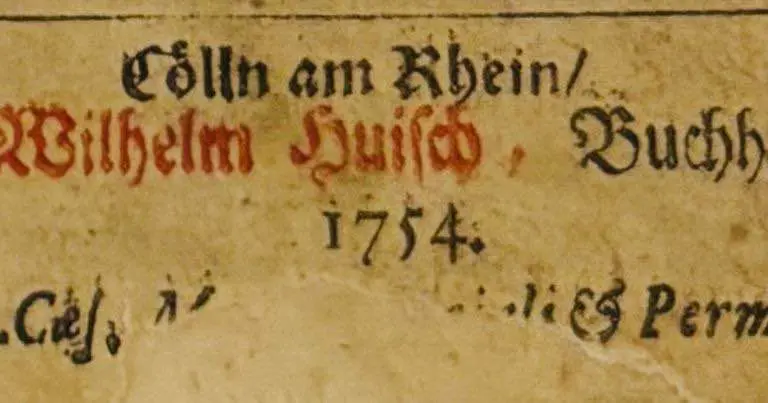 Cölln am Rhein/
Wilhelm Huiſch, Buchh
1754.
.Cæſ. & Perm